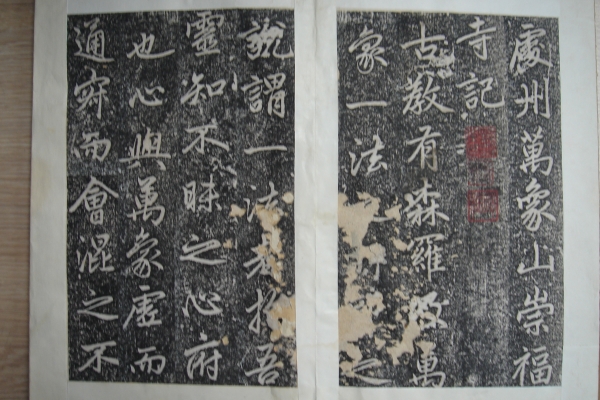 處州萬象山崇福
寺記
古教有森羅及萬
象一法之所之
說謂一法者指吾
靈知不昧之心府
也心與萬象虛而
通寂而會混之不